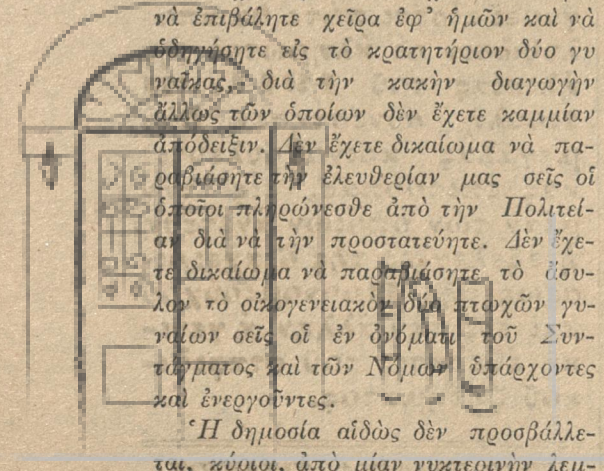 νὰ ἐπιβάλητε χεῖρα ἐφ’ ἡμῶν καὶ νὰ
ὁδηγήσητε εἰς τὸ κρατητήριον δύο γυ
ναῖκας, διὰ τὴν κακὴν διαγωγὴν
ἄλλως τῶν ὁποίων δὲν ἔχετε καμμίαν
ἀπόδειξιν. Δὲν ἔχετε δικαίωμα νὰ πα-
ραβιάσητε τὴν ἐλευθερίαν μας σεῖς οἱ
ὁποῖοι πληρώνεσθε ἀπὸ τὴν Πολιτεί-
αν διὰ νὰ τὴν προστατεύητε. Δὲν ἔχε-
τε δικαίωμα νὰ παραβιάσητε τὸ ἄσυ-
λον τὸ οἰκογενειακὸν δύο πτωχῶν γυ-
ναίων σεῖς οἱ ἐν ὀνόματι τοῦ Συν-
τάγματος καὶ τῶν Νόμων ὑπάρχοντες
καὶ ἐνεργοῦντες.
Ἡ δημοσία αἰδὼς δὲν προσβάλλε-
ται, κύριοι, ἀπὸ μίαν νυκτερινὴν λεμ-